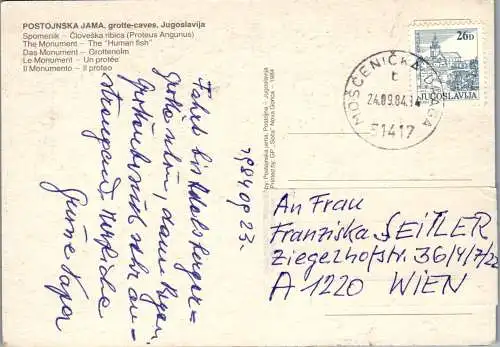 POSTOJNSKA JAMA, grotte-caves, Jugoslavija
Spomenik – Človeška ribica (Proteus Angunus)
The Monument – The "Human fish"
Das Monument – Grottenolm
Le Monument – Un protée
Il Monumento – Il proteo
1984 09 23.
Fahrt bis
dann Regen.
sehr an-
strengend.
Grüße Papa
by Postojnska jama, Postojna – Jugoslavija
Printed by: GP "Soča" Nova Gorica – 1984
26D
JUGOSLAVIJA
MOŠĆENIČKA DRAGA
t
24.09.84.14
51417
An Frau
Franziska SEITLER
Ziegelhofstr. 36/4/7/22
A 1220 WIEN